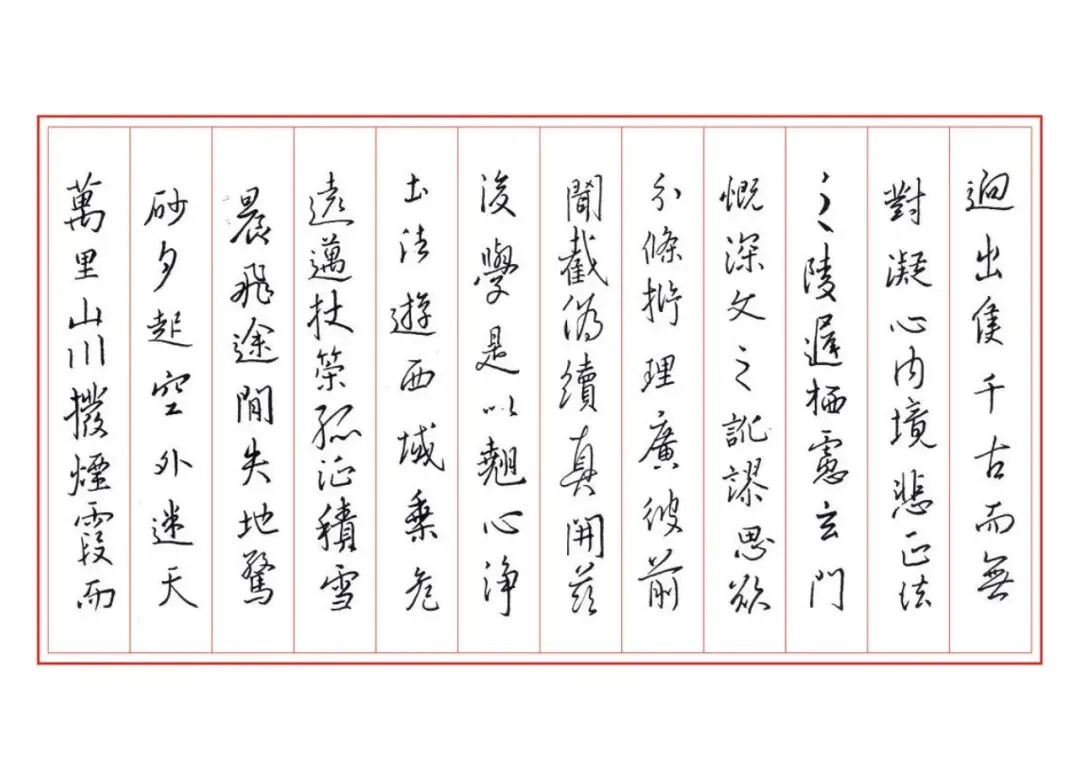 迥出隻千古而無
對凝心內境悲正法
之陵遲栖慮玄門
慨深文之訛謬思欲
分條析理廣彼前
聞截偽續真開茲
後學是以翹心淨
土法遊西域乘危
遠邁杖策孤征積雪
晨飛途間失地驚
砂夕起空外迷天
萬里山川撥煙霞而